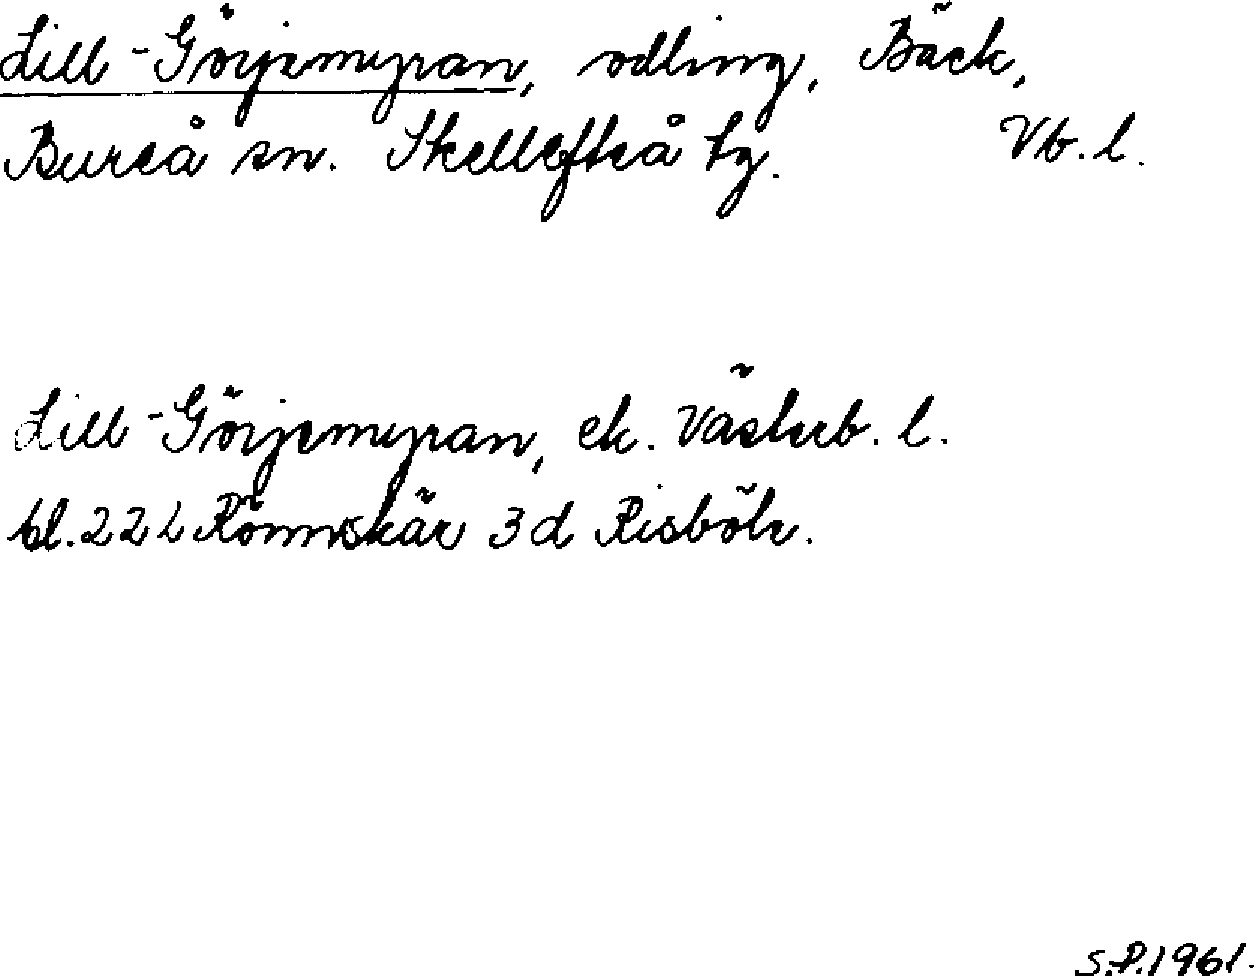 Lill-Görjemyran, odling, Bäck,
Bureå sn. Skellefteå tg. Vb. l.
Lill-Görjemyran, ek. Västerb. l.
bl. 22 L Rönnskär 3d Risböle.
S.P. 1961.